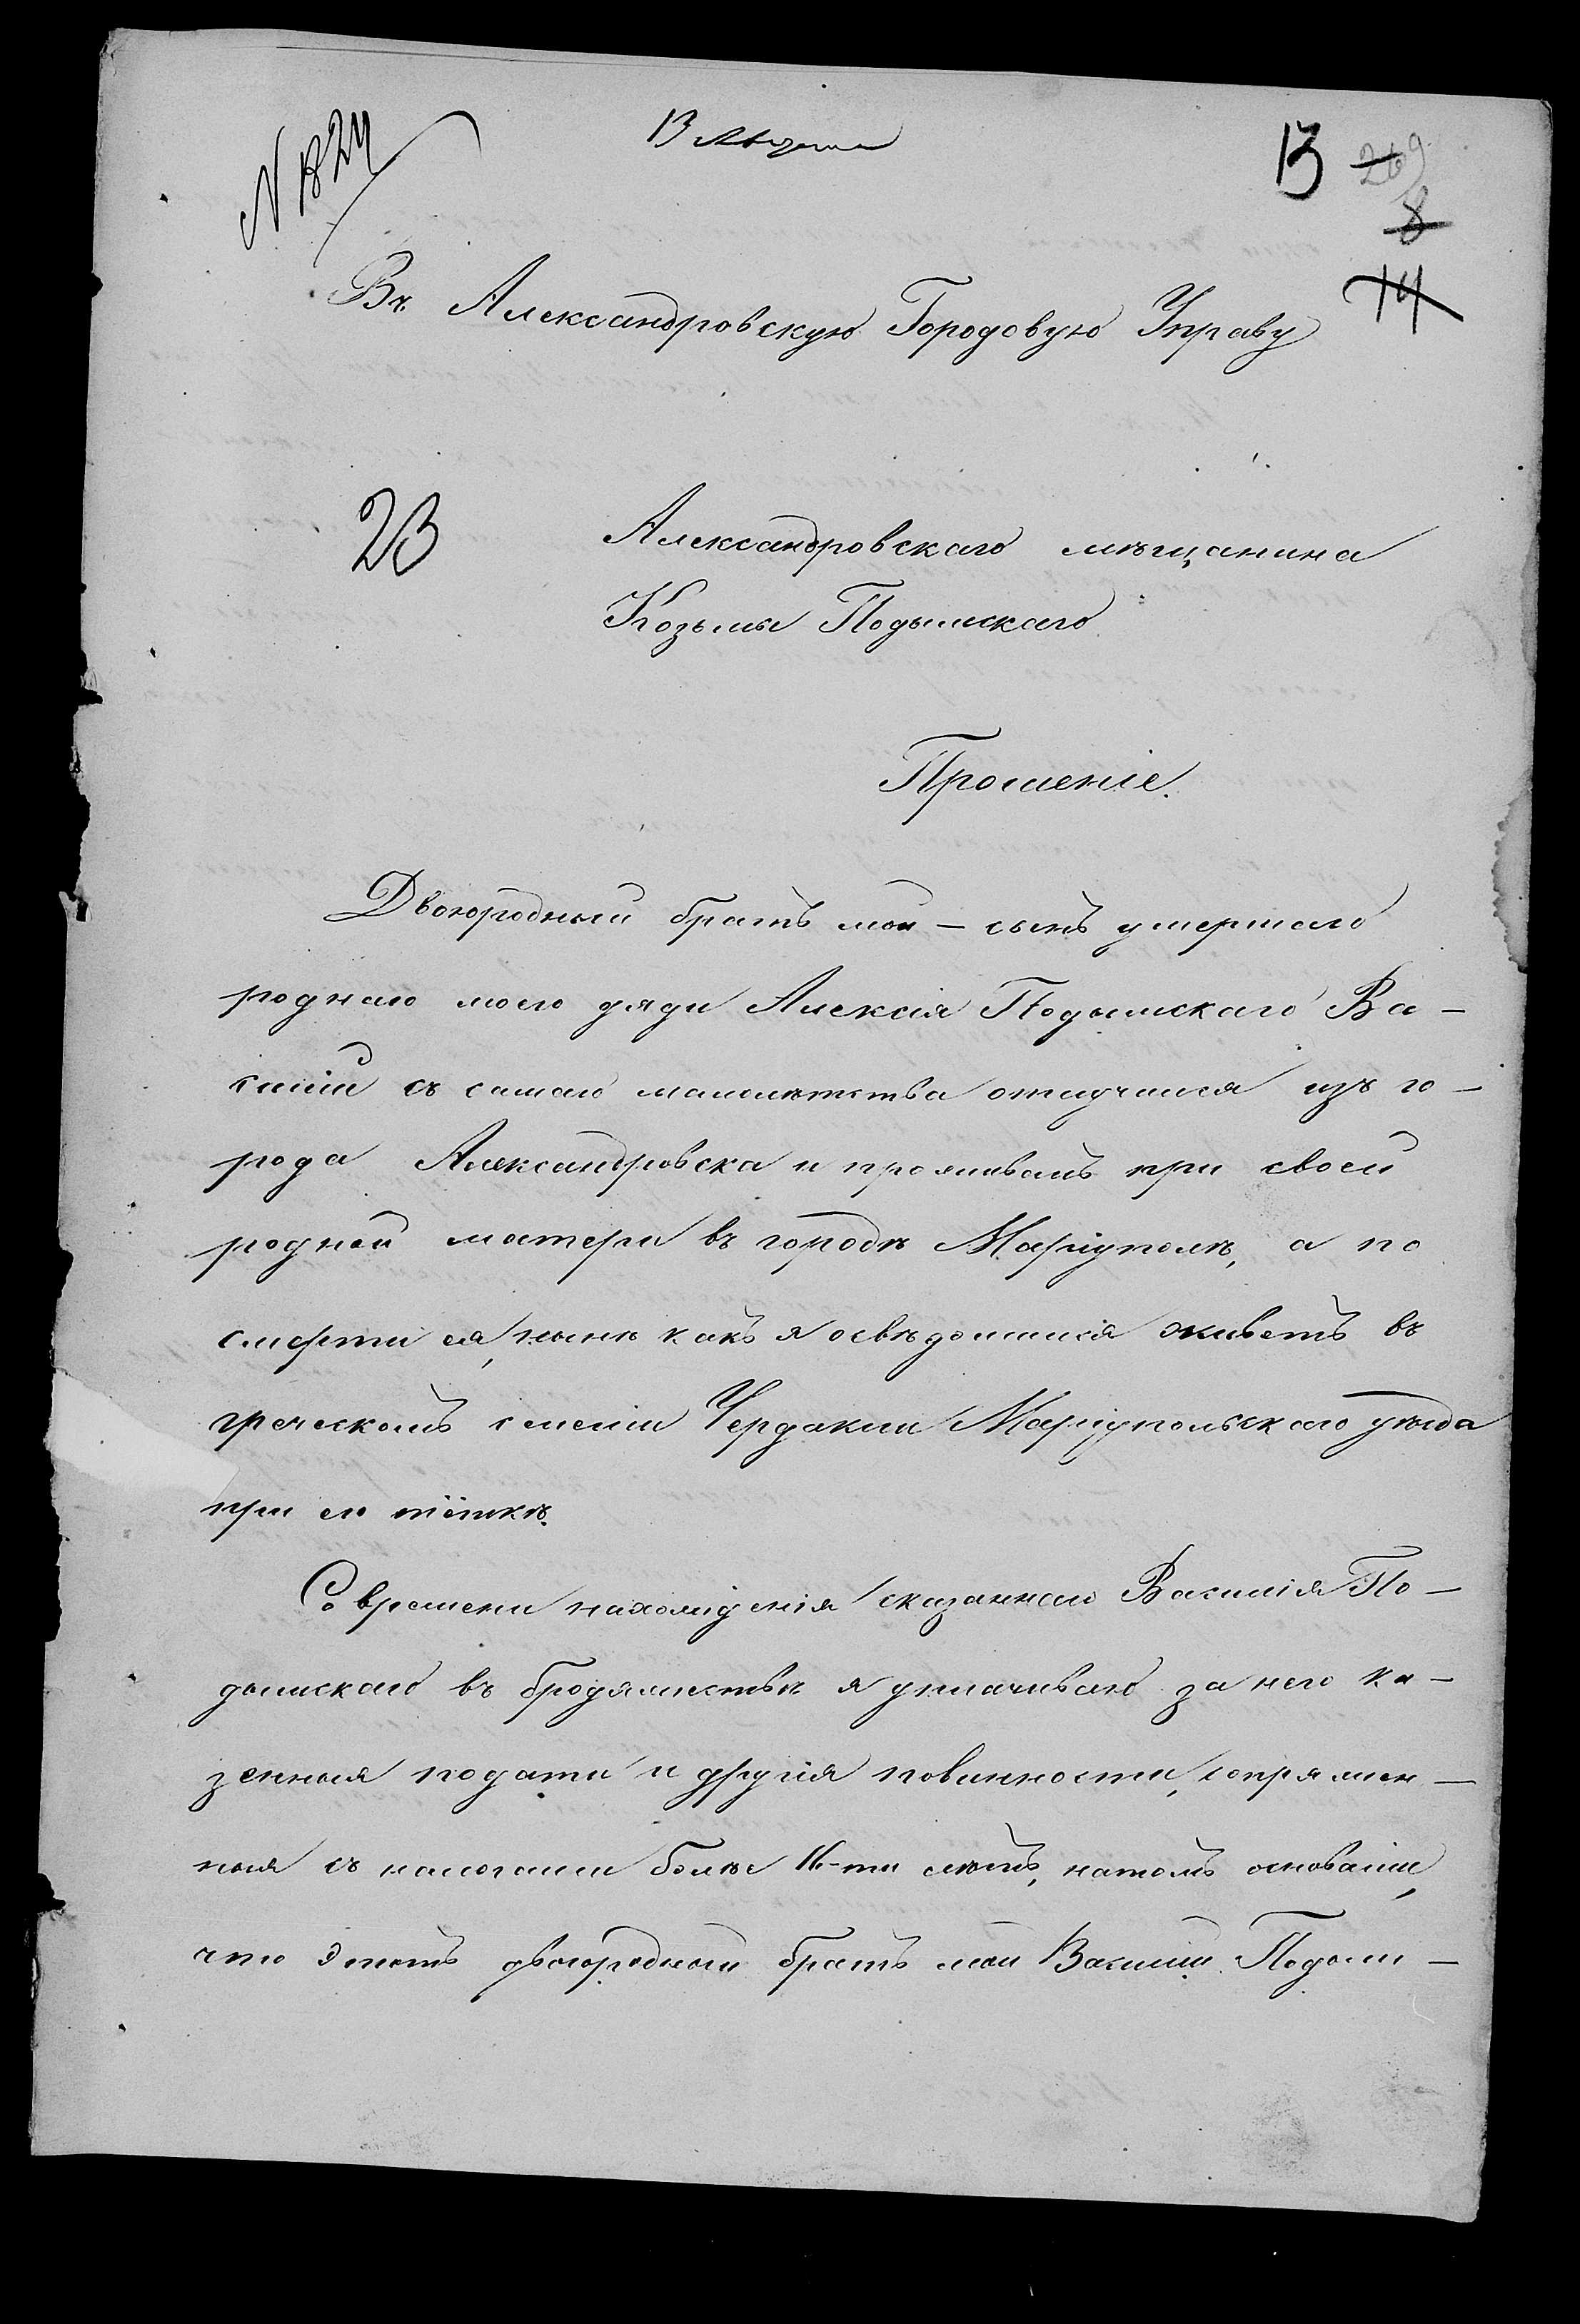 N 1824
13 Августа
13 269
8
14
Въ Александровскую Городовую Управу
23
Александровскаго мѣщанина
Козьмы Подымскаго
Прошеніе.
Двоюродный братъ мой – сынъ умершаго
роднаго моего дяди Алексія Подымскаго Ва-
силій съ самаго малолѣтства отлучился изъ го-
рода Александровска и проживалъ при своей
родной матери въ городѣ Маріуполѣ, а по
смерти ея, нынѣ какъ я освѣдомился живетъ въ
греческомъ селеніи Чердакли Маріупольскаго уѣзда
при его тёткѣ.
Со времени нахожденія сказаннаго Василія По-
дымскаго въ бродяжествѣ я уплачиваю за него ка-
зенныя подати и другія повинности, сопряжен-
ныя съ налогами болѣе 16-ти лѣтъ, на томъ основаніи,
что этотъ двоюродный братъ мой Василій Подым-